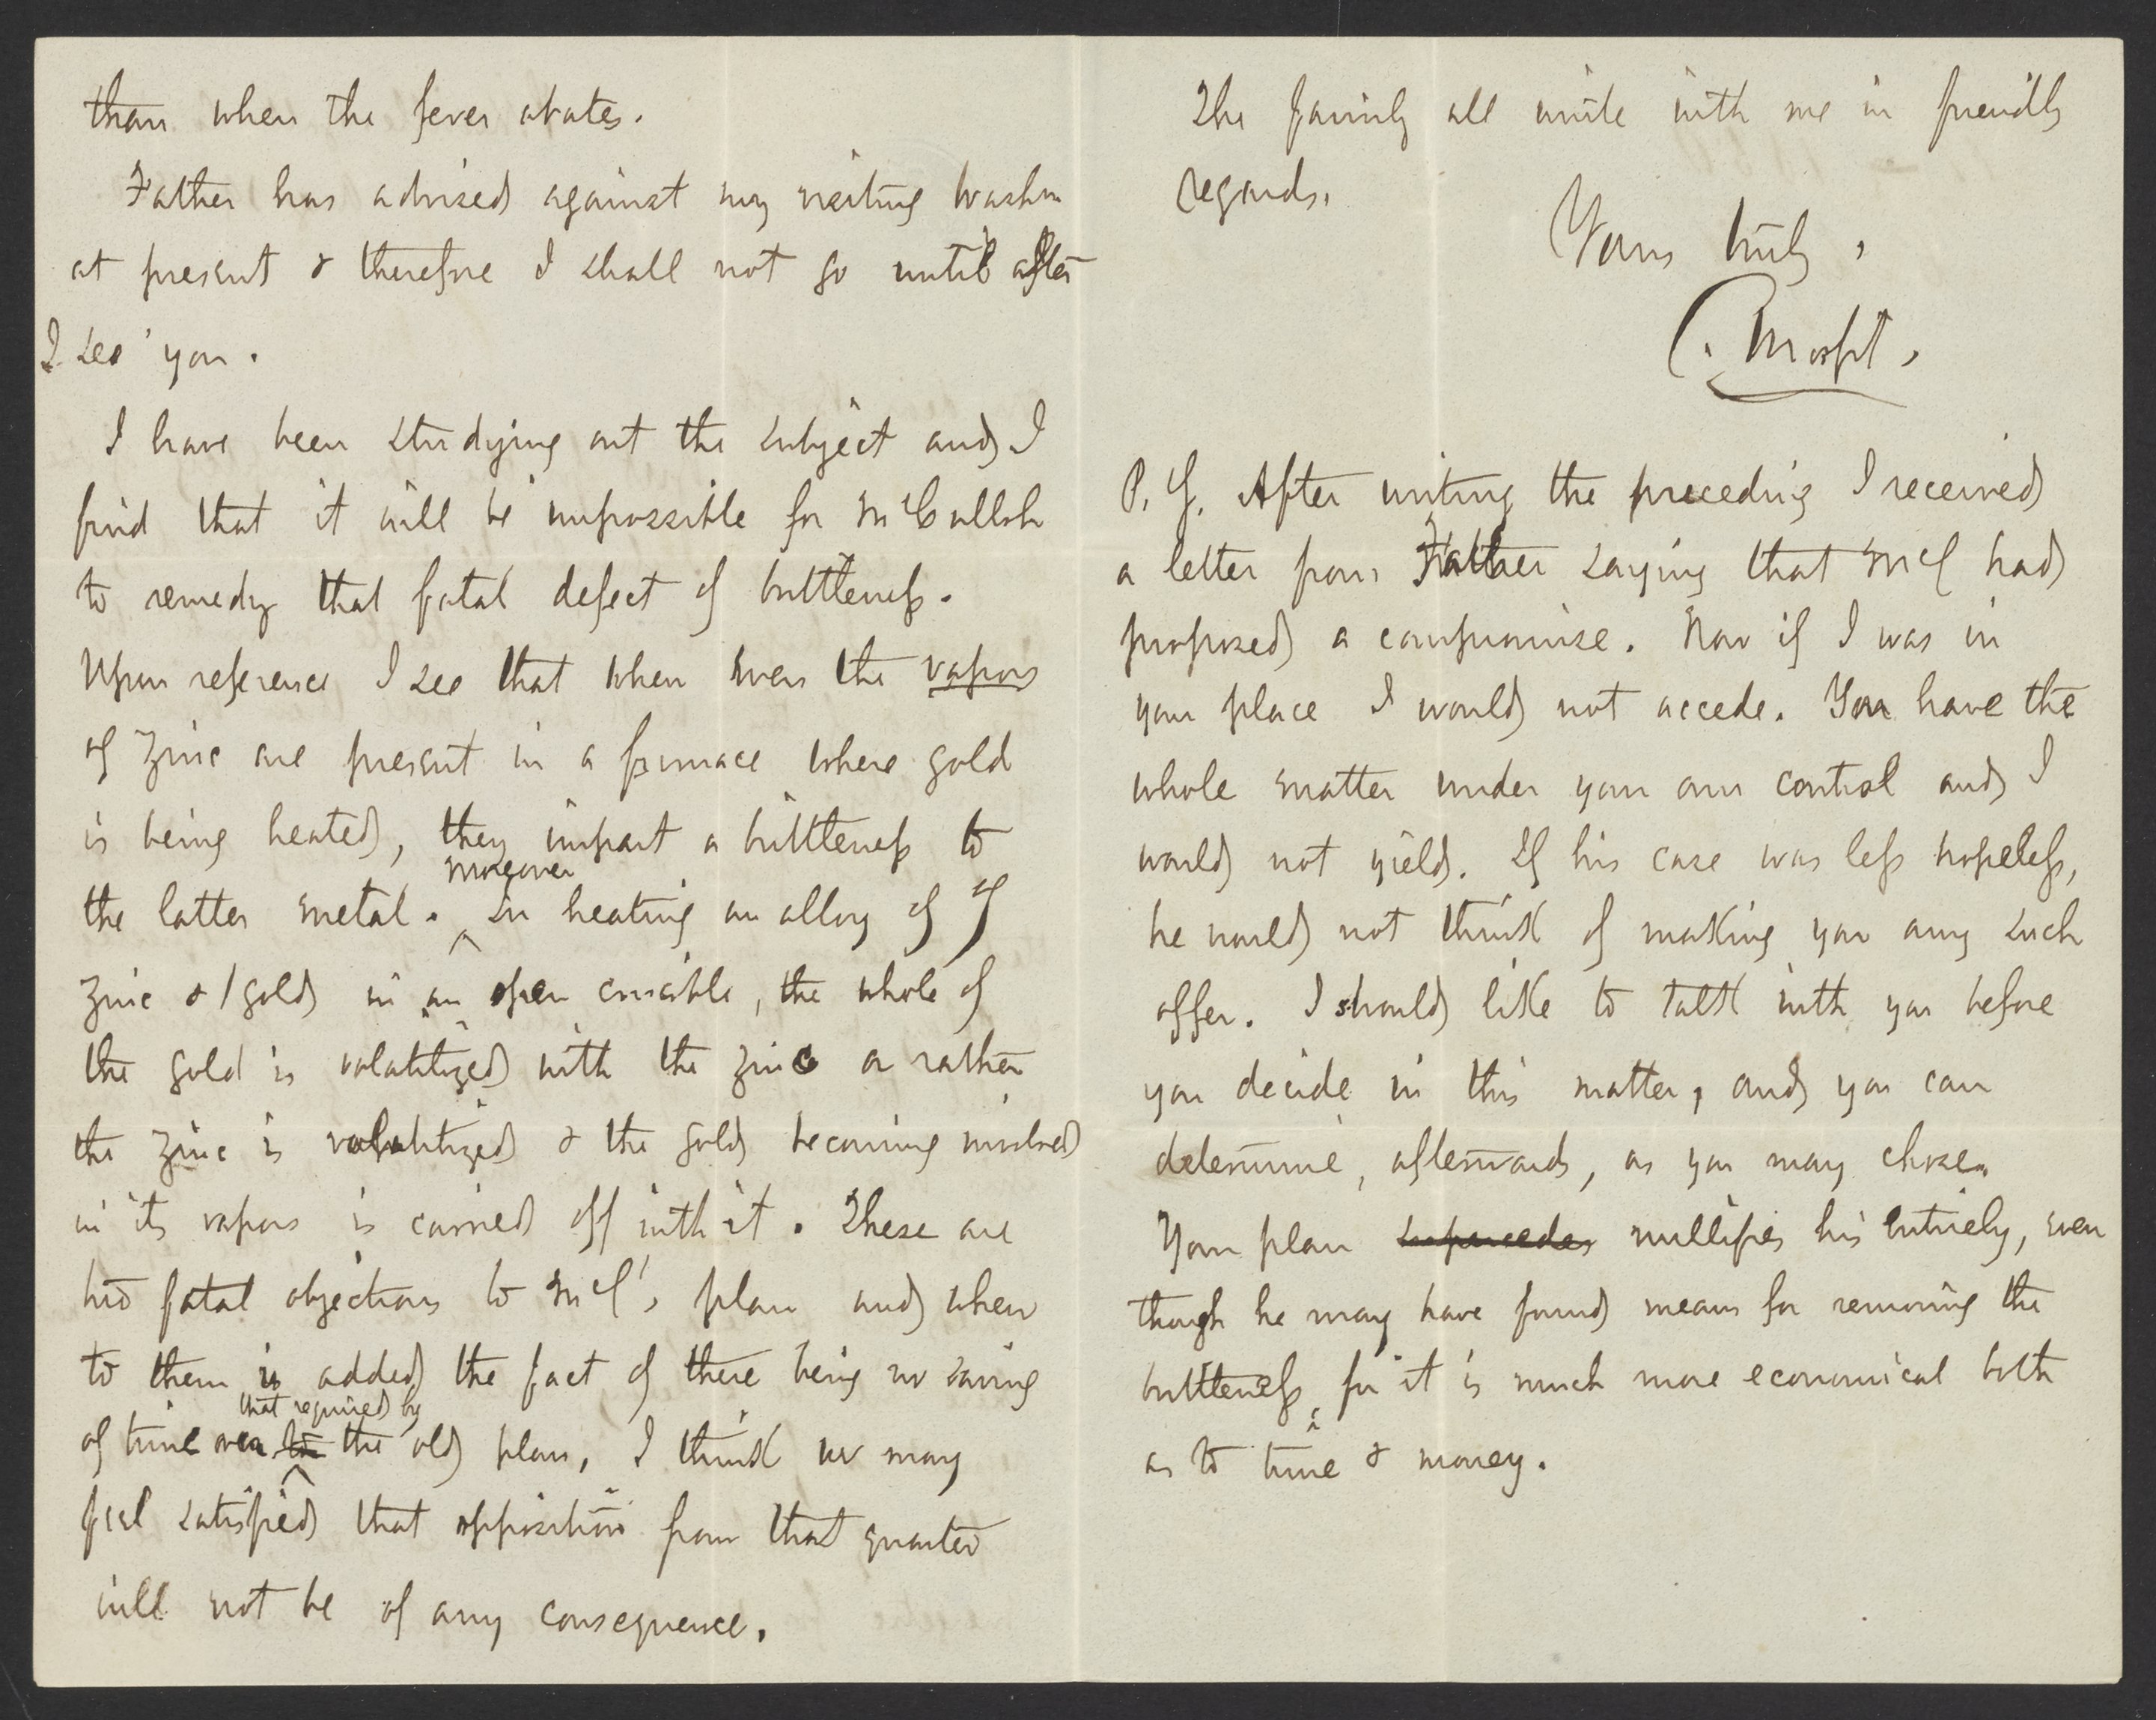 than when the fever abates.
Father has advised against my visiting Washn
at present & therefore I shall not go until after
I see you.
I have been studying out the subject and I
find that it will be impossible for McCulloh
to remedy that fatal defect of brittleness.
Upon reference I see that when even the vapors
of zinc are present in a furnace where gold
is being heated, they impart a brittleness to
the latter metal. moreover In heating an alloy of 7
zinc & 1 gold in an open crucible, the whole of
the gold is volatilized with the zinc or rather
the zinc is volatilized & the gold becoming involved
in its vapors is carried off with it. These are
two fatal objections to McC's plan and when
to them is added the fact of there being no saving
of time over to that required by the old plan, I think we may
feel satisfied that opposition from that quarter
will not be of any consequence.
The family all unite with me in friendly
regards.
Yours truly,
C. Morfit.
P.S. After writing the preceding I received
a letter from Father saying that McC had
proposed a compromise. Now if I was in
your place I would not accede. You have the
whole matter under your own control and I
would not yield. If his case was less hopeless,
he would not think of making you any such
offer. I should like to talk with you before
you decide in this matter, and you can
determine, afterwards, as you may chose.
Your plan supercedes nullifies his entirely, even
though he may have found means for removing the
brittleness, for it is much more economical both
as to time & money.